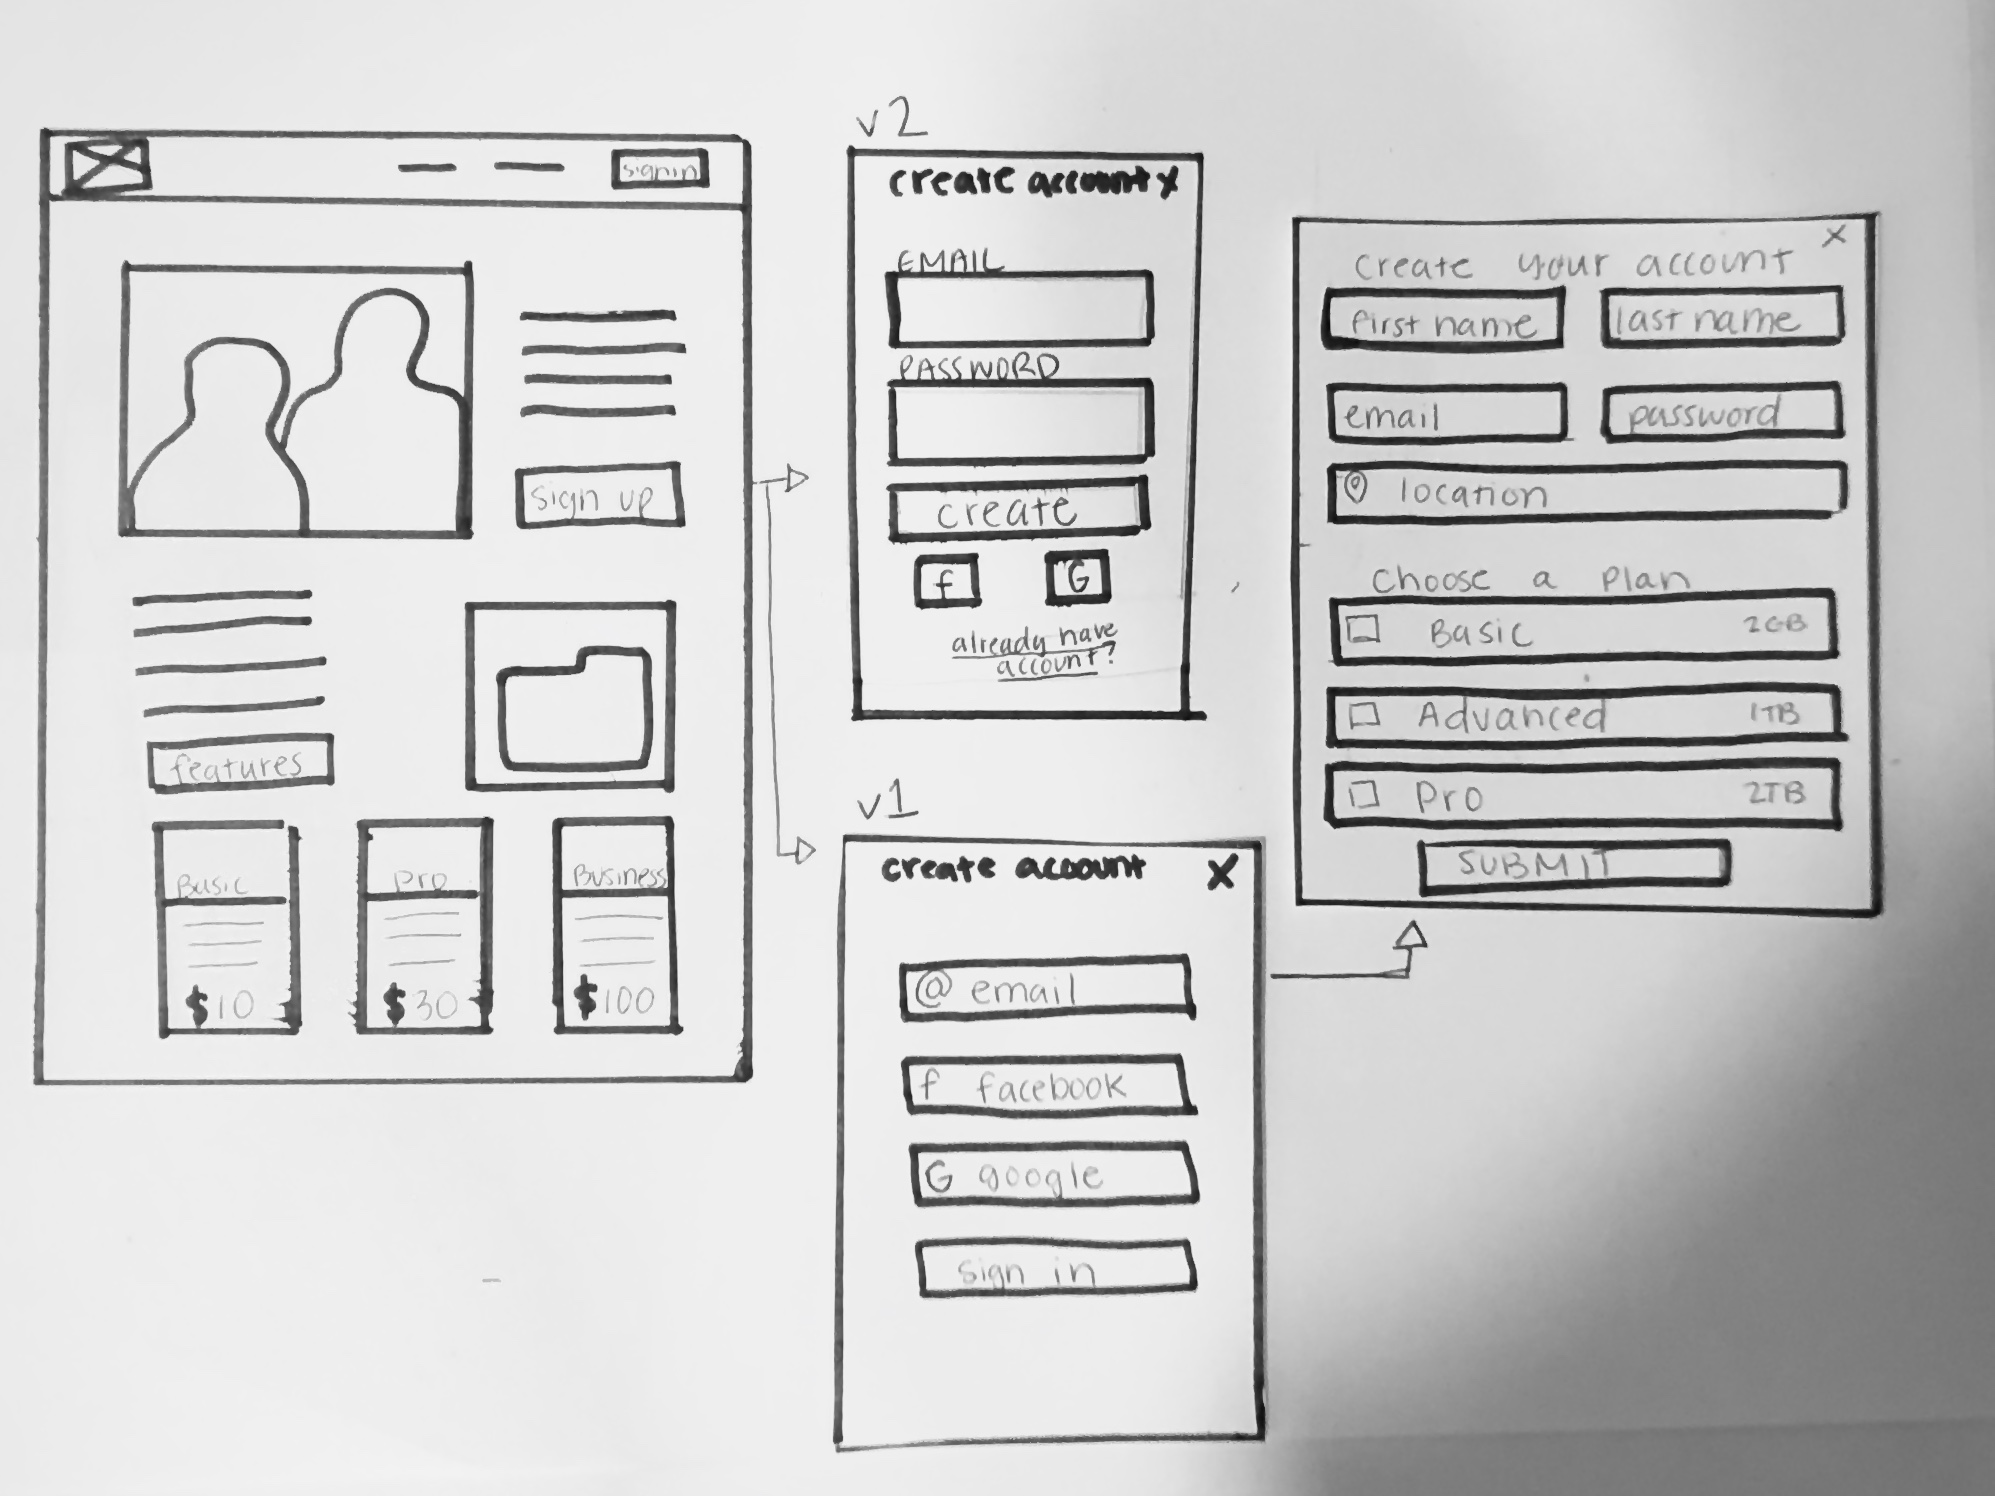 signin
sign up
features
Basic
pro
Business
$10
$30
$100
v2
create account x
EMAIL
PASSWORD
create
f
G
already have
account?
v1
create account X
@ email
f facebook
G google
sign in
x
create your account
first name
last name
email
password
location
choose a plan
Basic 2GB
Advanced 1TB
pro 2TB
SUBMIT